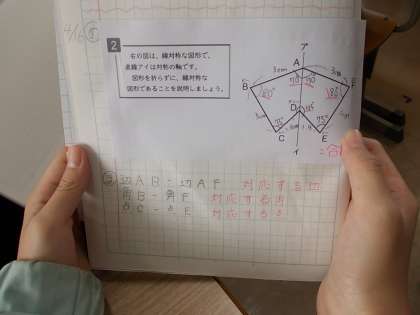 4/16 ⑤
2
右の図は、線対称な図形で、
直線アイは対称の軸です。
図形を折らずに、線対称な
図形であることを説明しましょう。
ア
3cm
A
3cm
70° 70°
B
80°
F
80°
D
C
75°
E
75°
イ
辺AB=辺AF 対応する辺
角B=角F 対応する角
点C=点E 対応する点